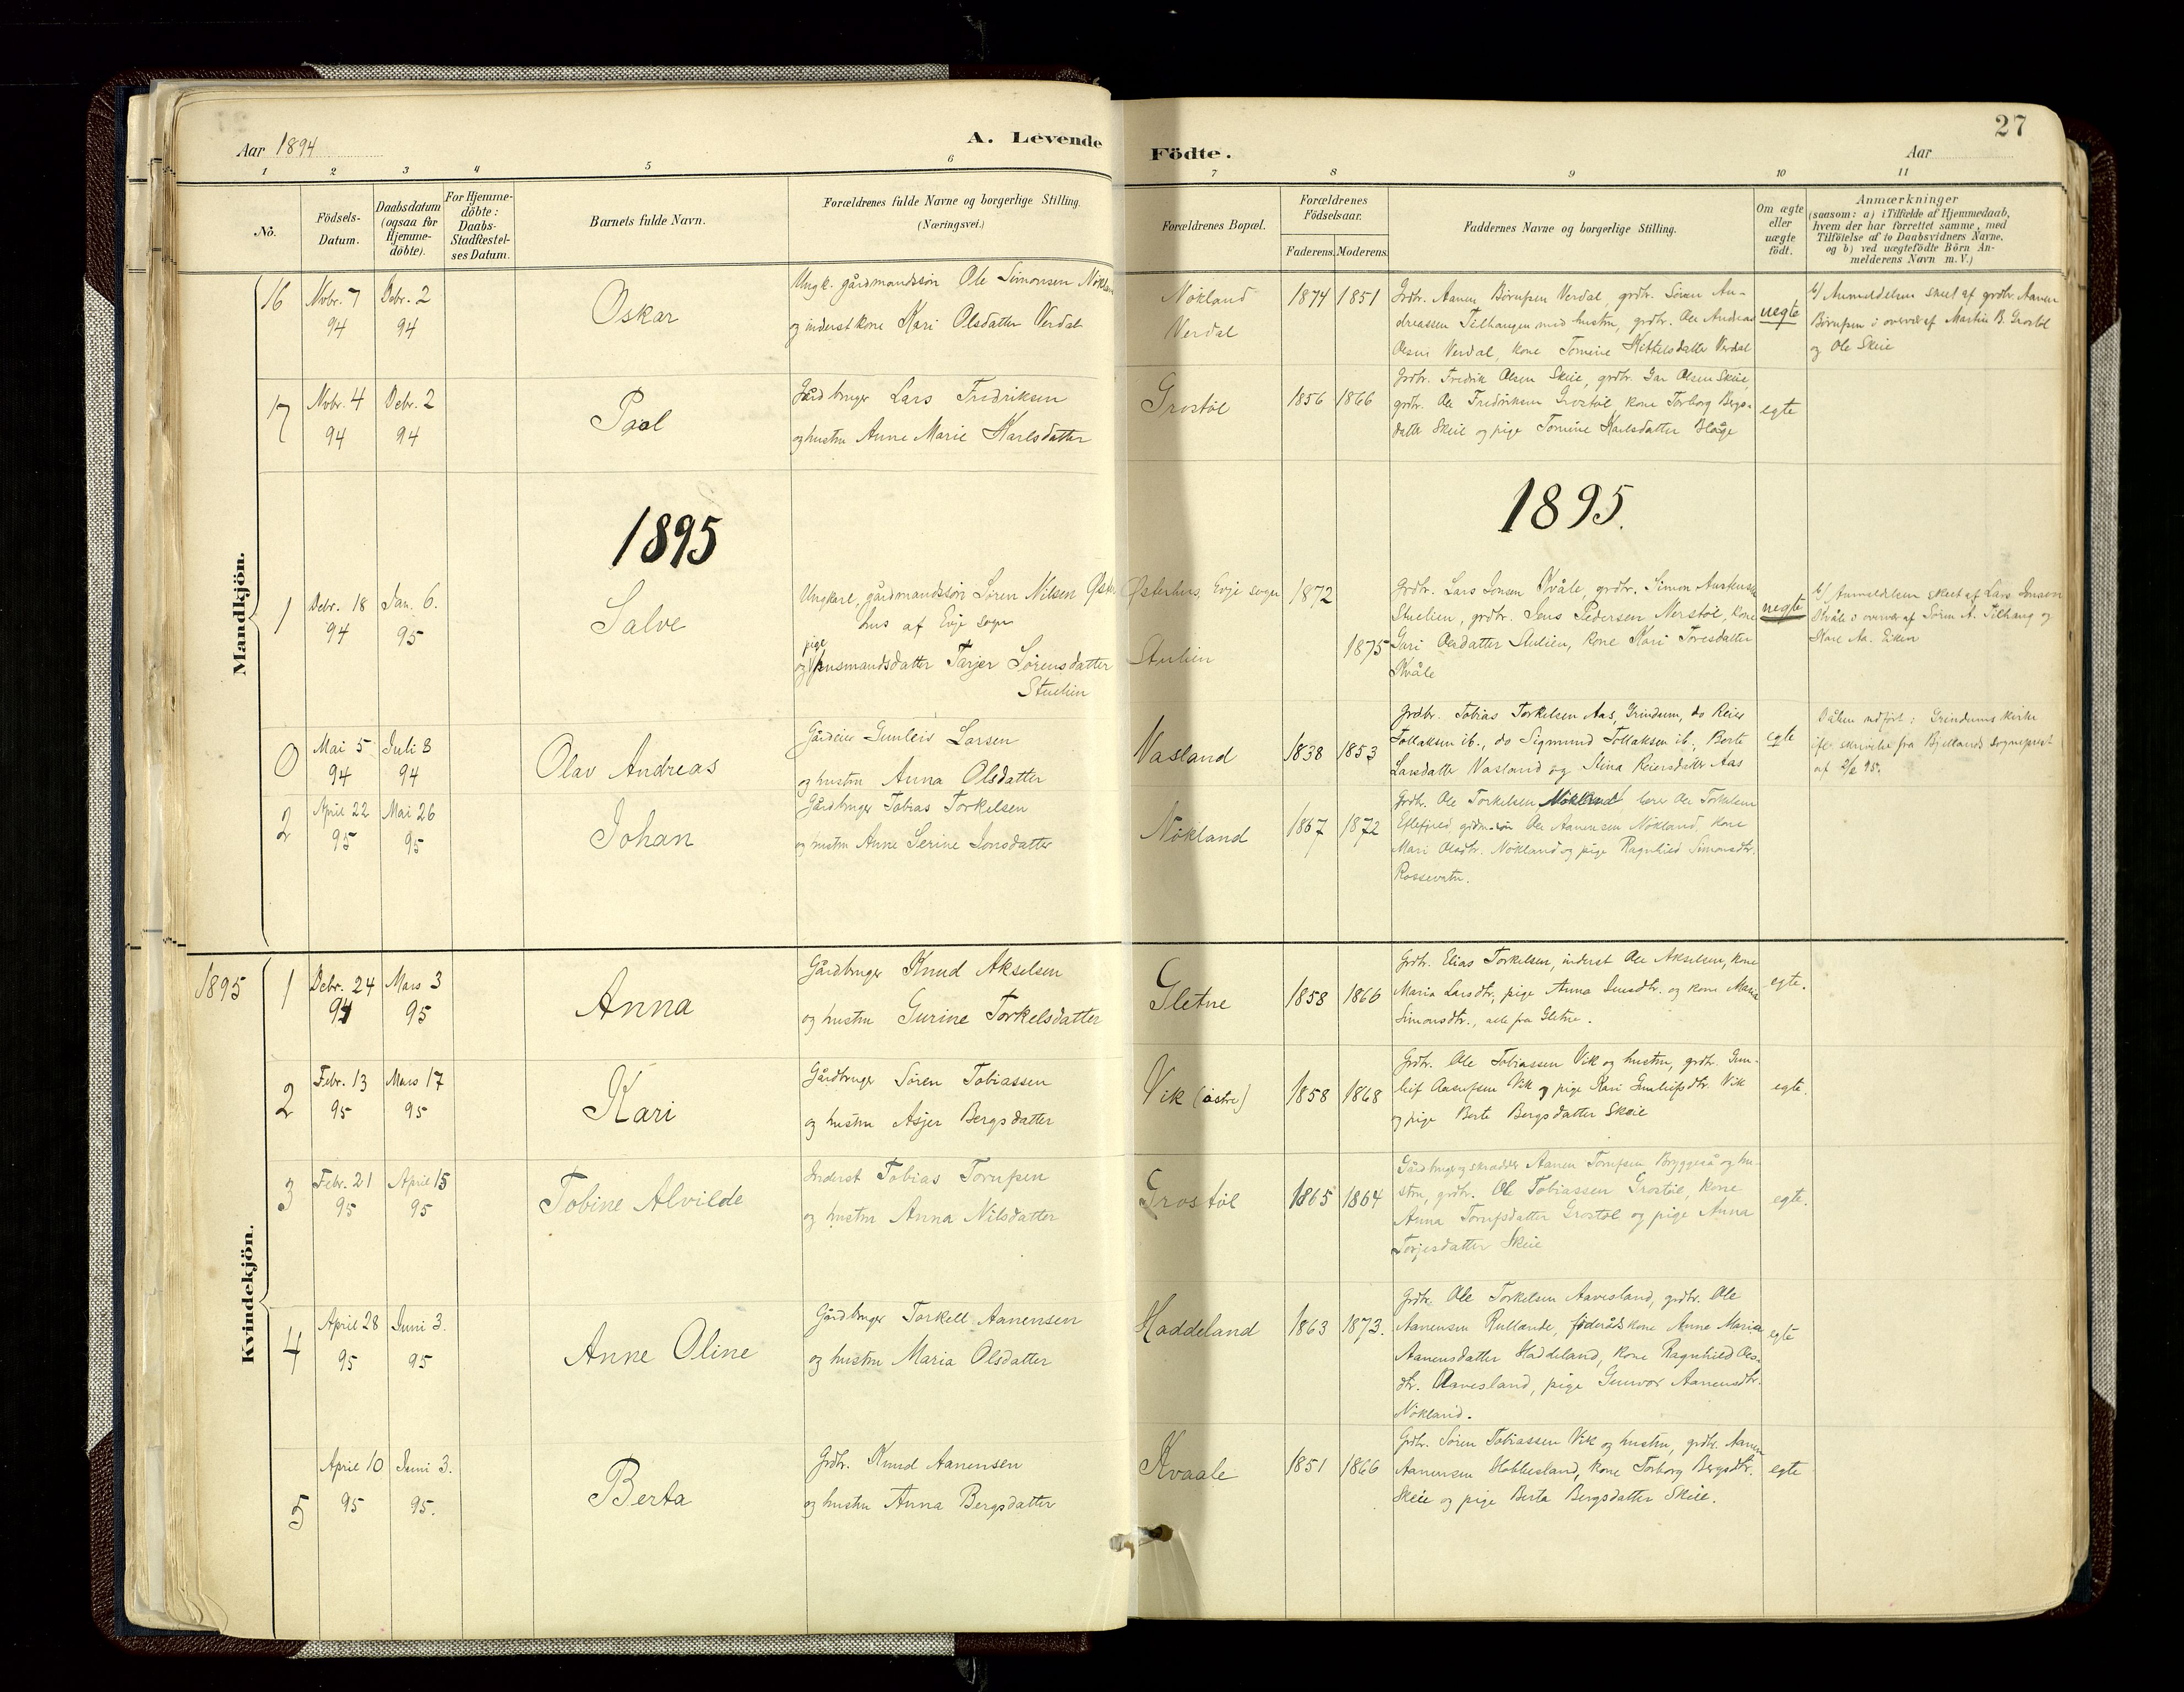 27
Aar 1894
A. Levende
Födte.
Aar
1 2 3 4 5 6 7 8 9 10 11
No.
Födsels-
Datum.
Daabsdatum
(ogsaa for
Hjemme-
döbte).
For Hjemme-
döbte:
Daabs-
Stadfæstel-
ses Datum.
Barnets fulde Navn.
Forældrenes fulde Navne og borgerlige Stilling.
(Næringsvei.)
Forældrenes Bopæl.
Forældrenes
Födselsaar.
Faderens. Moderens.
Faddernes Navne og borgerlige Stilling.
Om ægte
eller
uægte
födt.
Anmærkninger
(saasom: a) i Tilfælde af Hjemmedaab,
hvem der har forrettet samme, med
Tilföielse af to Daabsvidners Navne,
og b) ved uægtefödte Börn An-
melderens Navn m. V.)
Mandkjön.
16
Novbr. 7
94
Debr. 2
94
Oskar
Ungk. gårdmandssön Ole Simonsen Nökland
og inderst kone Kari Olsdatter Verdal
Nökland
Verdal
1874 1851
Grdbr. Aanen Börufsen Verdal, grdbr. Sören An-
dreassen Tilhaugen med hustru, grdbr. Ole Andreas
Olsen Verdal, kone Tomine Kittelsdatter Verdal
uegte
b/ Anmeldelsen skeet af grdbr. Aanen
Börufsen i overvær af Martin B. Grostöl
og Ole Skeie
17
Novbr. 4
94
Debr. 2
94
Paal
Gårdbruger Lars Fredriksen
og hustru Anne Marie Karlsdatter
Grostöl
1856 1866
Grdbr. Fredrik Olsen Skeie, grdbr. Olsen Skeie,
grdbr. Ole Fredriksen Grostöl, kone Torborg Bergs-
datter Skeie og pige Tomine Karlsdatter
egte
1895
1895.
1
Debr. 18
94
Jan. 6.
95
Salve
Ungkarl, gårdmandssön Sören Nilsen Öster
hus af Evje sogn
pige
og husmandsdatter Tarjer Sörensdatter
Stulien
Österhus, Evje sogn
Stulien
1872
1875
Grdbr. Lars Jonsen Kvåle, grdbr. Simon
Stulien, grdbr. Jens Pedersen Merstöl, kone
Guri Olsdatter Stulien, kone Kari Toresdatter
Kvåle
uegte
b/ Anmeldelsen skeet af Lars Jonsen
Kvåle i overvær af Sören A. Tilhaug og
Aa. Eiken
0
Mai 5
94
Juli 8
94
Olav Andreas
Gårdeier Gunleis Larsen
og hustru Anna Olsdatter
Vasland
1838 1853
Grdbr. Tobias Torkelsen Aas, Grindum, do Reier
Tollaksen ib., do Sigmund Tollaksen ib., Berte
Larsdatter Vasland og Stina Reiersdatter Aas
egte
Dåben udfört i Grindums kirke
ifl. skrivelse fra Bjellands sogneprest
af 2/2 95.
2
April 22
95
Mai 26
95
Johan
Gårdbruger Tobias Torkelsen
og hustru Anne Serine Jonsdatter
Nökland
1867 1872
Grdbr. Ole Torkelsen Nökland, lærer Ole Torkelsen
gdm. sön Ole Aanensen Nökland, kone
Mari Olsdtr. Nökland og pige Ragnhild Simonsdtr.
Rossevatn.
Kvindekjön.
1895
1
Debr. 24
94
Mars 3
95
Anna
Gårdbruger Knud Akselsen
og hustru Gurine Torkelsdatter
Gletne
1858 1866
Grdbr. Elias Torkelsen, inderst Ole Akselsen, kone
Maria Larsdtr., pige Anna og kone Maria
Simonsdtr., alle fra Gletne.
egte.
2
Febr. 13
95
Mars 17
95
Kari
Gårdbruger Sören Tobiassen
og hustru Asjer Bergsdatter
Vik (östre)
1858 1868
Grdbr. Ole Tobiassen Vik og hustru, grdbr. Gun-
leif Aasufsen Vik og pige Kari Gunleifsdtr. Vik
og pige Berte Bergsdatter Skeie
egte.
3
Febr. 21
95
April 15
95
Tobine Alvilde
Inderst Tobias Torufsen
og hustru Anna Nilsdatter
Grostöl
1865 1864
Gårdbruger og skrædder Aanen Torufsen Bryggeså og hu-
stru, grdbr. Ole Tobiassen Grostöl, kone
Anna Torufsdatter Grostöl og pige Anna
Torjesdatter Skeie
egte.
4
April 28
95
Juni 3.
95
Anne Oline
Gårdbruger Torkell Aanensen
og hustru Maria Olsdatter
Haddeland
1863 1873.
Grdbr. Ole Torkelsen Aavesland, grdbr. Ole
Aanensen Rullande, föderådskone Anne Maria
Aanensdatter Haddeland, kone Ragnhild Ols-
dtr. Aavesland, pige Gunvor Aanensdtr.
Nökland.
egte
5
April 10
95
Juni 3.
95.
Berta
Grdbr. Knud Aanensen
og hustru Anna Bergsdatter
Kvaale
1851 1866
Grdbr. Sören Tobiassen Vik og hustru, grdbr. Aanen
Aanensen Hobbesland, kone Torborg Bergsdtr.
Skeie og pige Berta Bergsdatter Skeie.
egte